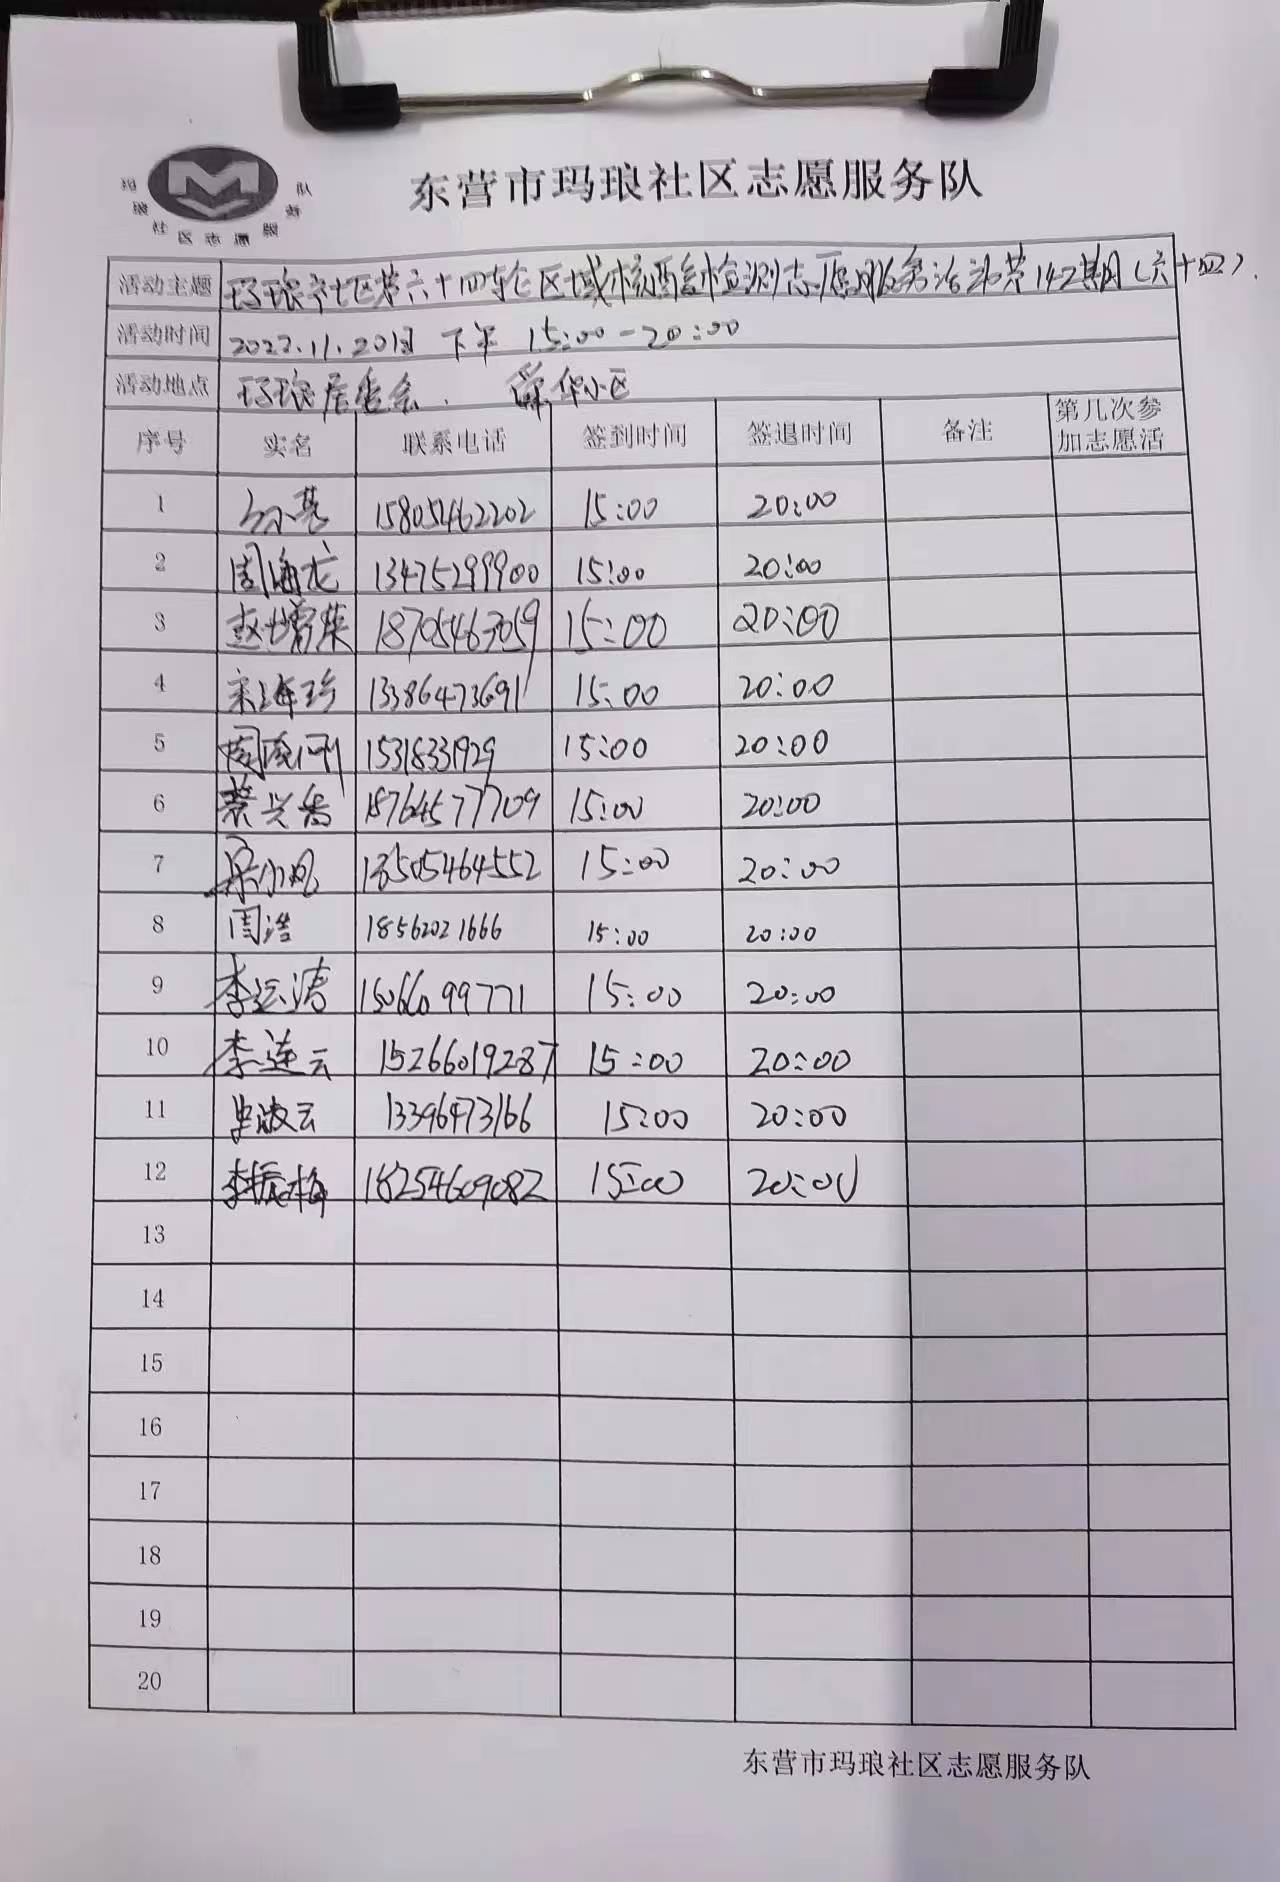 玛琅社区志愿服务队
东营市玛琅社区志愿服务队
活动主题 玛琅社区第六十四轮区域核酸检测志愿服务活动第142期(六十四).
活动时间 2022.11.20日 下午 15:00-20:00
活动地点 玛琅居委会. 舜华小区
序号 实名 联系电话 签到时间 签退时间 备注 第几次参
加志愿活
1 15805462202 15:00 20:00
2 周海龙 13475299900 15:00 20:00
3 赵增荣 18705463059 15:00 20:00
4 宋海珍 13386473691 15:00 20:00
5 15318331929 15:00 20:00
6 蔡兴香 18764577709 15:00 20:00
7 梁小凤 13505464552 15:00 20:00
8 周浩 18562021666 15:00 20:00
9 李运涛 15066099771 15:00 20:00
10 李莲云 15266019287 15:00 20:00
11 史波云 13396473166 15:00 20:00
12 李振梅 18254609082 15:00 20:00
13
14
15
16
17
18
19
20
东营市玛琅社区志愿服务队